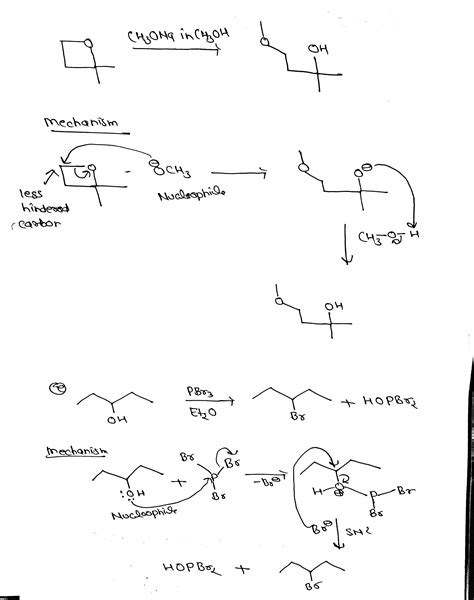 CH3ONa in CH3OH
O
O
OH
Mechanism
O - ⊖OCH3
less hindered carbon
Nucleophile
O
O⊖
CH3-O-H
O
OH
e
OH
PBr3
Et2O
Br
+ HOPBr2
Mechanism
:OH
Nucleophile
+
Br
Br
P
Br
-Br⊖
H O ⊕
P Br
Br
Br⊖
SN2
HOPBr2 +
Br